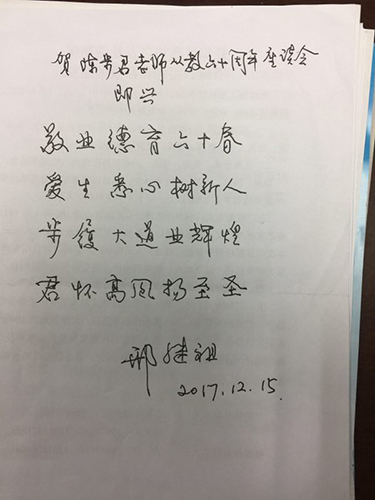 贺陈步君老师从教六十周年座谈会
即兴
敬业德育六十春
爱生悉心树新人
步履大道业辉煌
君怀高风扬至圣
邢继祖
2017.12.15.